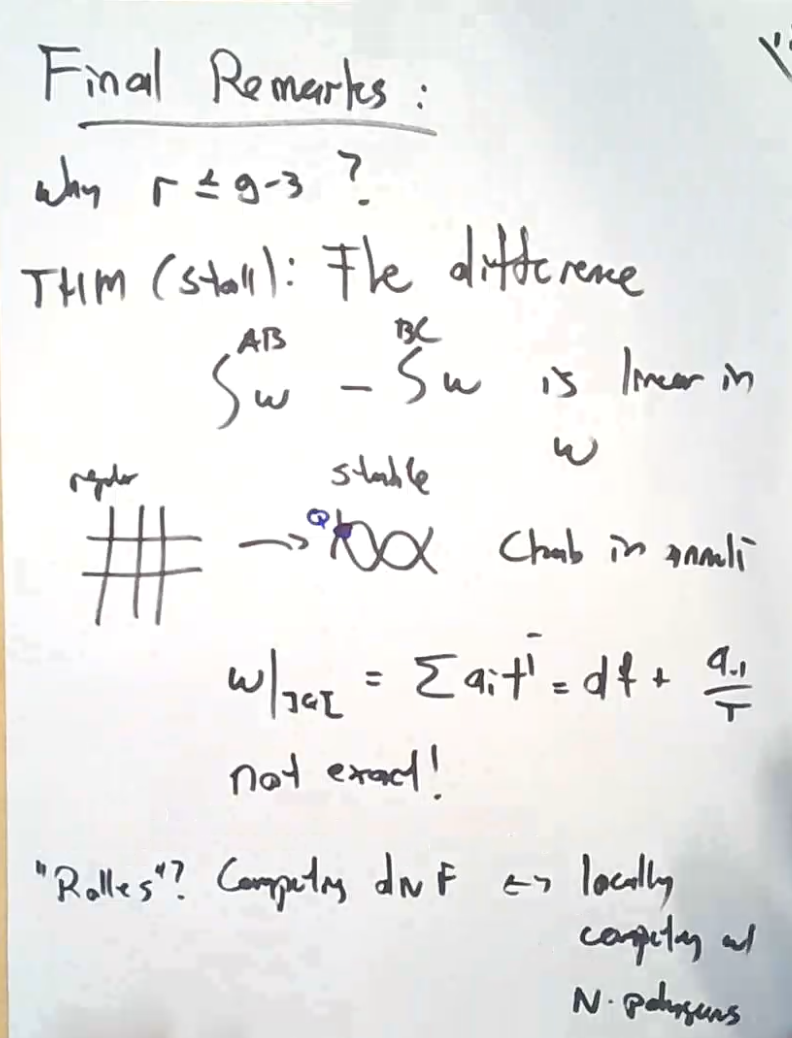 Final Remarks:
Why r ≤ g-3 ?
THM (Stoll): The difference
∫^AB ω - ∫^BC ω is linear in
ω
regular stable
Q
→ Chab in annuli
ω|_]Q[ = Σ a_i t^i = df + a_-1/T
not exact!
"Rolles"? Computing div F ↔ locally
computing w/
N. polygons